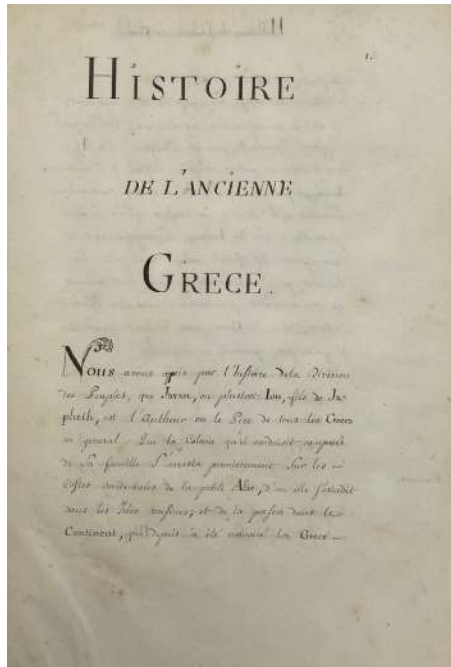 HISTOIRE
DE L'ANCIENNE
GRECE.
Nous avons apris par l'histoire de la Division
des Peuples, que Javan, ou plustost Ion, fils de Ja-
pheth, est l'Autheur ou le Pere de tous les Grecs
en general. Que la Colonie qu'il conduisit composée
de sa famille s'arresta premierement sur les
Costes occidentales de la petite Asie, d'où elle s'estendit
dans les Isles voisines, et de la passa dans le
Continent, qui depuis a été nommé la Grece